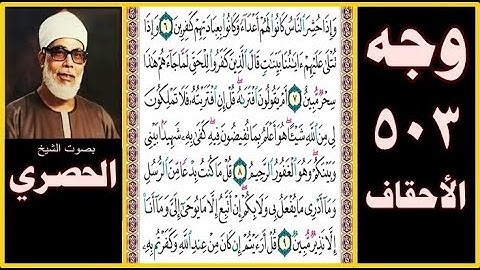 وجه
٥٠٣
الأحقاف
وَإِذَا حُشِرَ النَّاسُ كَانُوا لَهُمْ أَعْدَاءً وَكَانُوا بِعِبَادَتِهِمْ كَافِرِينَ ٦ وَإِذَا
تُتْلَىٰ عَلَيْهِمْ ءَايَاتُنَا بَيِّنَاتٍ قَالَ الَّذِينَ كَفَرُوا لِلْحَقِّ لَمَّا جَاءَهُمْ هَٰذَا
سِحْرٌ مُّبِينٌ ٧ أَمْ يَقُولُونَ افْتَرَاهُ قُلْ إِنِ افْتَرَيْتُهُ فَلَا تَمْلِكُونَ
لِي مِنَ اللَّهِ شَيْئًا هُوَ أَعْلَمُ بِمَا تُفِيضُونَ فِيهِ كَفَىٰ بِهِ شَهِيدًا بَيْنِي
وَبَيْنَكُمْ وَهُوَ الْغَفُورُ الرَّحِيمُ ٨ قُلْ مَا كُنتُ بِدْعًا مِّنَ الرُّسُلِ
وَمَا أَدْرِي مَا يُفْعَلُ بِي وَلَا بِكُمْ إِنْ أَتَّبِعُ إِلَّا مَا يُوحَىٰ إِلَيَّ وَمَا أَنَا
إِلَّا نَذِيرٌ مُّبِينٌ ٩ قُلْ أَرَءَيْتُمْ إِن كَانَ مِنْ عِندِ اللَّهِ وَكَفَرْتُم بِهِ
بصوت الشيخ
الحصري